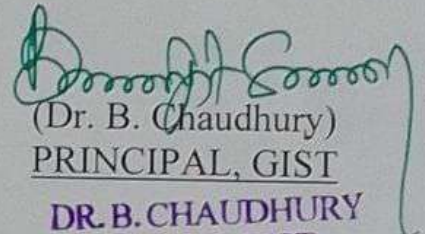 (Dr. B. Chaudhury)
PRINCIPAL, GIST
DR. B. CHAUDHURY